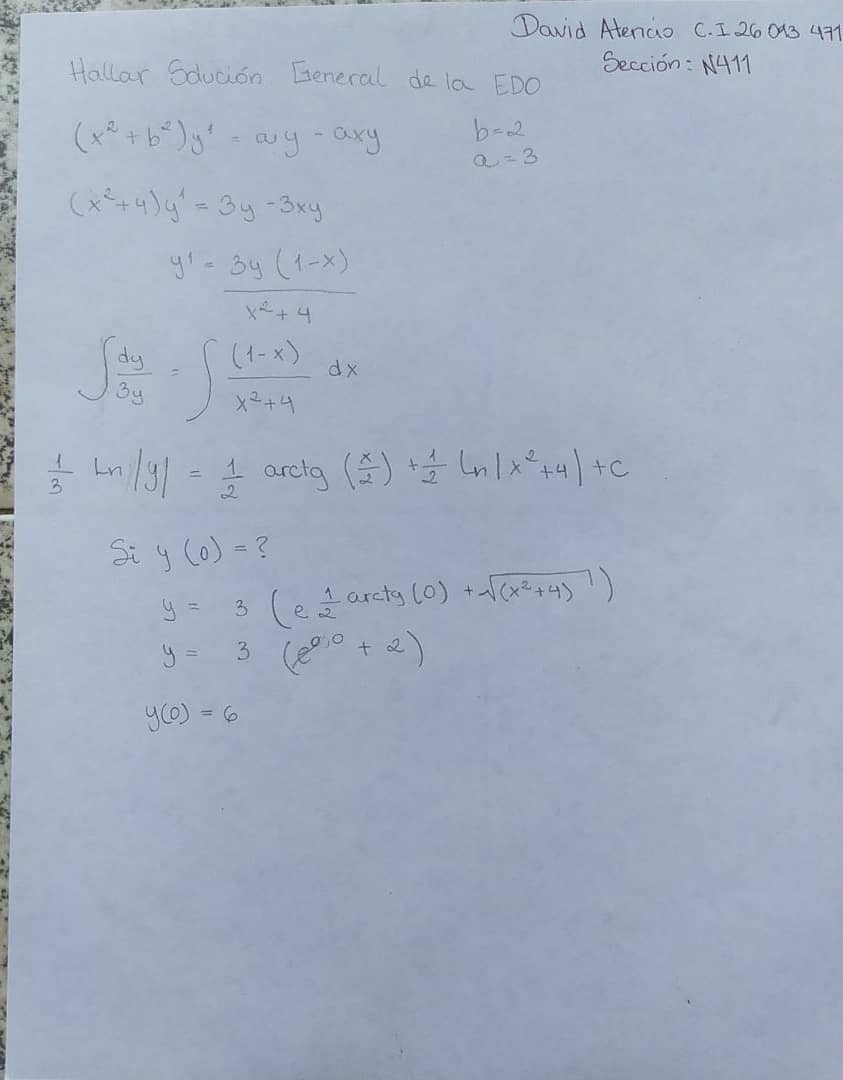 David Atencio C.I 26 043 471
Sección: N411
Hallar Solución General de la EDO
(x² + b²)y' = ay - axy
b=2
a=3
(x²+4)y' = 3y - 3xy
y' = 3y (1-x) / x²+4
∫ dy/3y = ∫ (1-x)/x²+4 dx
1/3 Ln|y| = 1/2 arctg (x/2) + 1/2 Ln|x²+4| + C
Si y (0) = ?
y = 3 (e 1/2 arctg (0) + √(x²+4))
y = 3 (e^0 + 2)
y(0) = 6